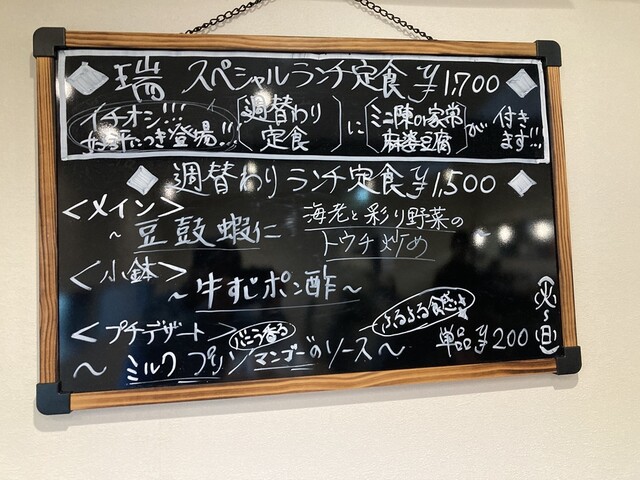 瑞 スペシャルランチ定食 ¥1,700
イチオシ!!!
好評につき登場!!
週替わり定食 に ミニ陳の家常麻婆豆腐 が 付きます!!
週替わりランチ定食 ¥1,500
<メイン>
~豆鼓蝦仁
海老と彩り野菜の
トウチ炒め ~
<小鉢>
~牛すじポン酢~
<プチデザート> バニラ香る ふるふる食感
~ミルクプリン マンゴーのソース~
単品¥200
(火~日)